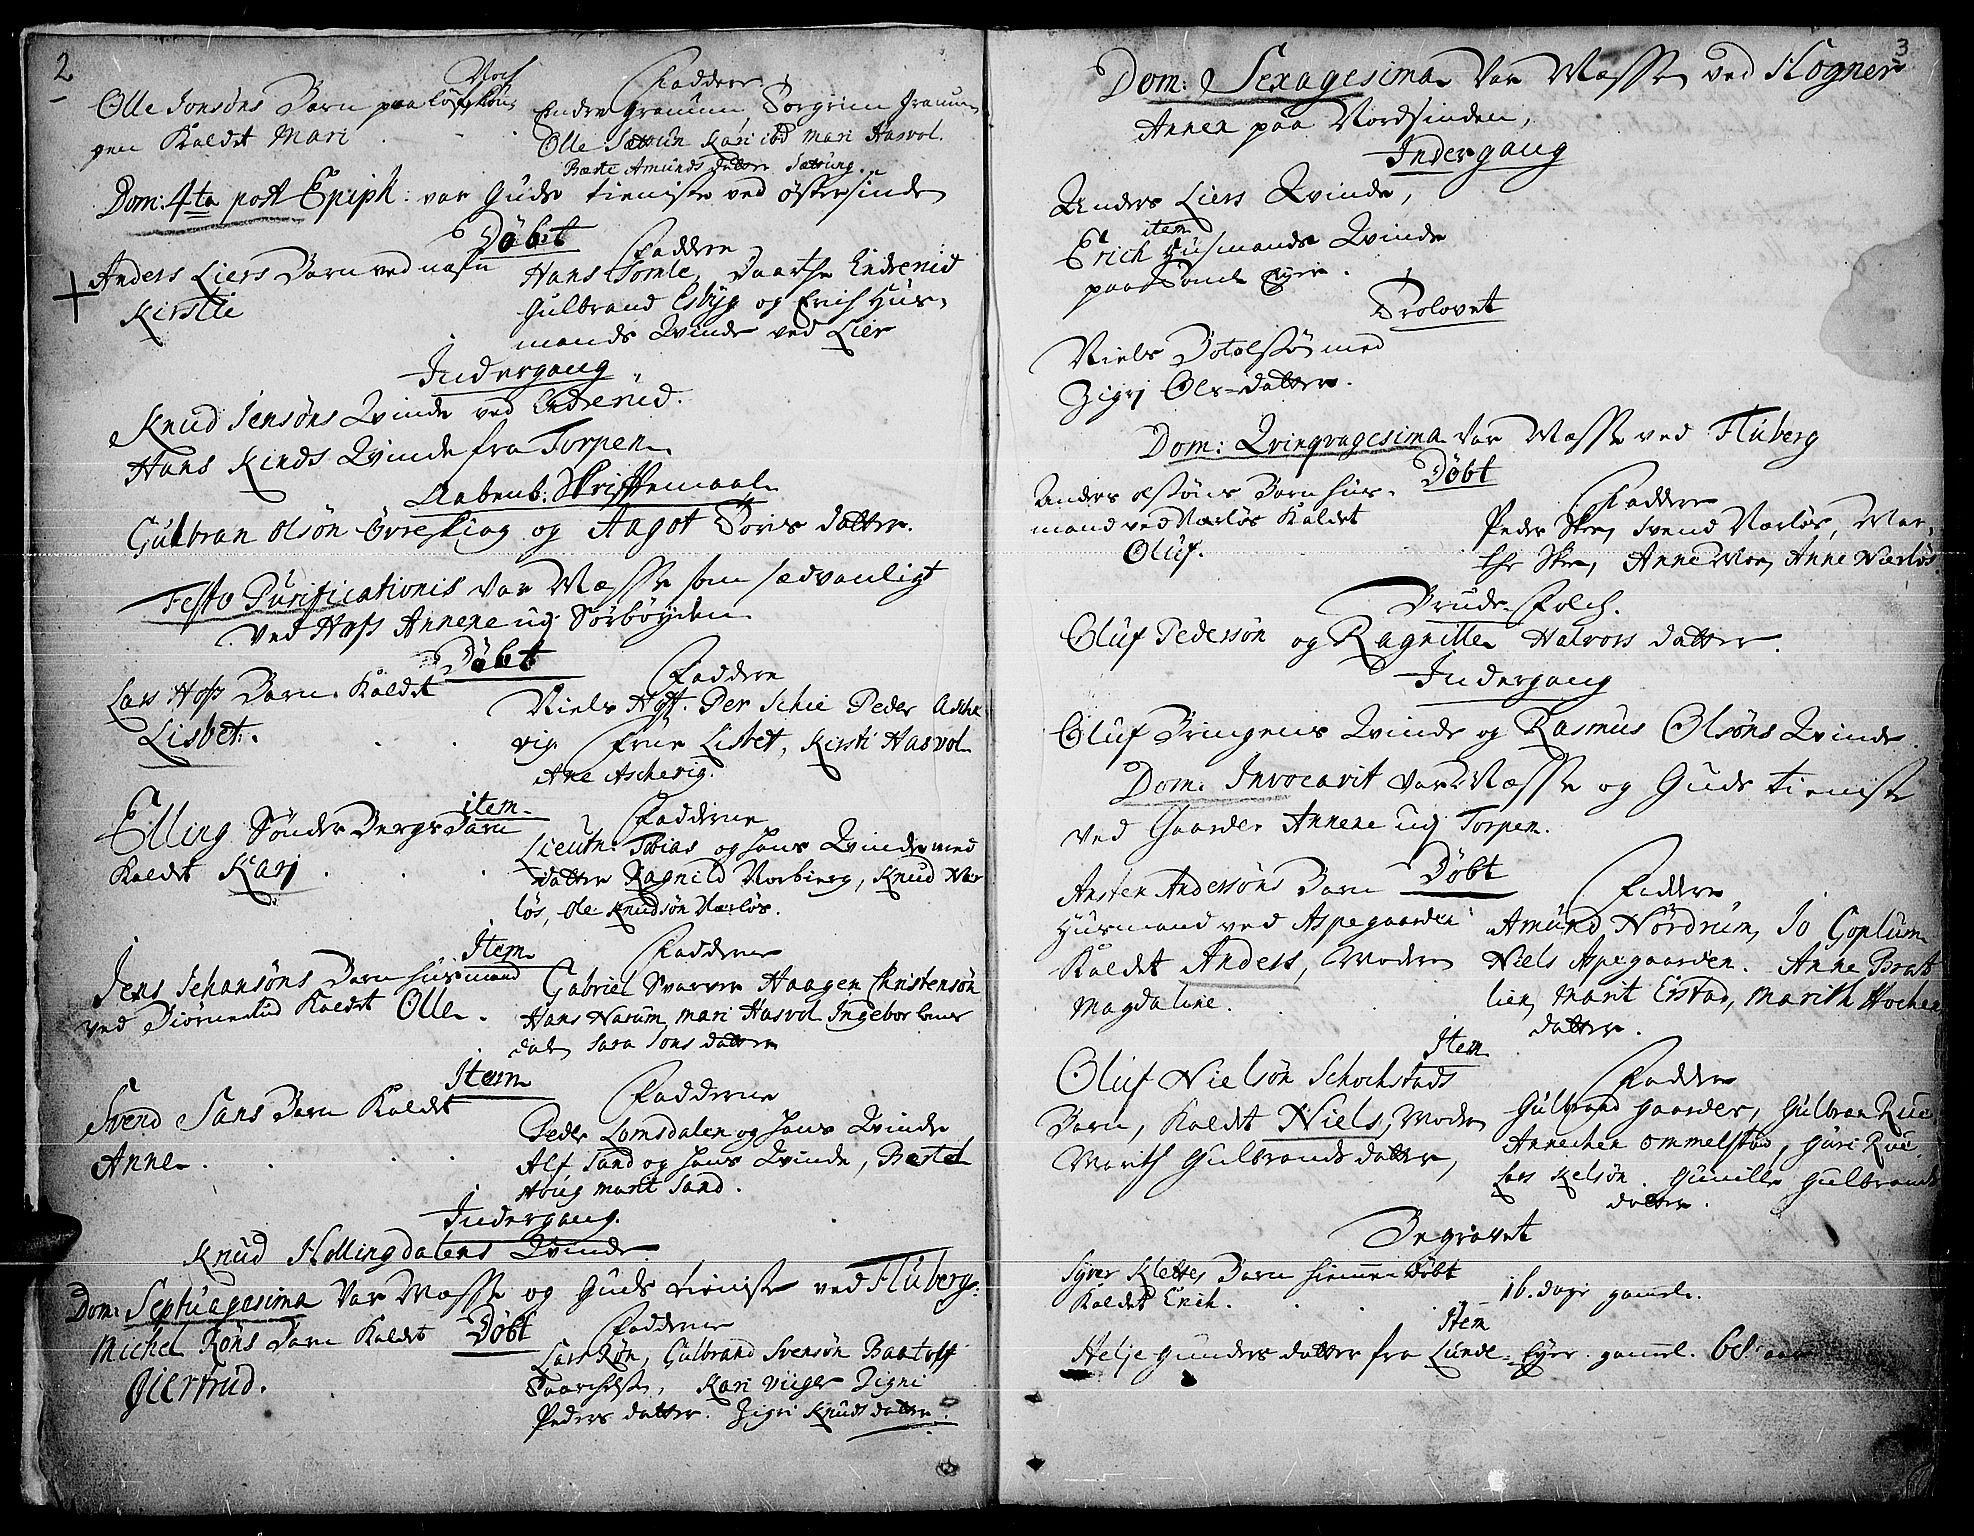 2
Noch
Olle Jonsøns Barn paa
gen Kaldet Mari
Faddere
Endre Granum, Torgrim Granum
Olle Sættun Kari ibd Mari Hasvol.
Berte Amunds datter Sættung.
Dom: 4ta post Epiph: var Guds tieniste ved Østersinde
Døbt
Anders Liers Barn ved nafn
Kirstie
Faddere
Hans Tomle, Baarthe Endrenid
Gulbrand Esbyg og Erich Huus-
mands Qvinde ved Lier
Indergang
Knud Jensøns Qvinde ved Endrenid.
Hans Kinds Qvinde fra Torpen
Aabenb: Skriftemaal
Gulbran Olsøn Øvreskiag og Aagot Toris datter.
Festo Purificationis var Messe som sædvanligt
Ved Hofs Annexe udj Sørbøyden
Døbt
Lars Hofs Barn Kaldet
Lisbet.
Faddere
Niels Hoff. Per Schie Peder Asche
vig Frue Lisbet, Kirsti Hasvol
Ane Aschevig.
item
Elling Sønder Bergs Barn
Kaldet Karj
Fadderne
Lieutn: Tobias og hans Qvinde med
datter Ragnild Norbierg, Knud Nær
løs, Ole Knudsøn Nærløs.
Item
Jens Jehansøns Barn huusmand
ved Biørnelud Kaldet Olle.
Fadderne
Gabriel Svarver Haagen Christensøn
Hans Narum, Mari Hasvol Ingebor
dal, Sara Jons datter
Item
Svend Sans Barn Kaldet
Anne
Fadderne
Peder Lomsdalen og hans Qvinde
Alf Sand og hans Qvinde, Bertel
Houg Marit Sand.
Indergang.
Knud Hollingdalens Qvinde
Dom: Septuagesima Var Messe og Guds tieniste ved Fluberg:
Døbt
Michel Røns Barn Kaldet
Giertrud.
Fadderne
Lars Røn, Gulbrand Svensøn Baatolf
Kari Viiger Zigni
Peders datter. Zigri Knuds datter.
3
Dom: Sexagesima Var Messe ved Hogner
Annex paa Nordsinden,
Indergang
Anders Liers Qvinde,
item
Erich Huusmands Qvinde
paa Eyer.
Trolovet
Niels Botolssøn med
Zigrj Ols-datter.
Dom: Qvinqvagesima Var Messe ved Fluberg
Døbt
Anders olssøns Barn huus-
mand ved Nærløs Kaldet
Oluf.
Faddere
Peder Skee, Svend Nærløs, Mar-
the Skee, Anne Moe, Anne Nærløs.
Brude-Folch.
Oluf Pedersøn og Ragnille Halvors datter.
Indergang
Oluf Bringens Qvinde og Rasmus Olsøns Qvinde.
Dom: Invocavit Var Messe og Guds tieniste
ved Gaarder Annexe udj Torpen.
Døbt
Austen Andersøns Barn
Huusmand ved Aspegaarden
Kaldet Anders, Moder
Magdalene.
Faddere
Amund Nordrum, Jo Goplum
Niels Aspegaarden. Anne Brat
lien, Marit Erstad, Marith Hochen
datter.
Item
Oluf Nielsøn Schochstads
Barn, Kaldet Niels, Moder
Marith Gulbrands datter,
Faddere
Gulbrand Gaarder, Gulbran Rue
Annechen Ommelstad, Guri Rue
Lars Kelsøn. Gunille Gulbrands
datter.
Begravet
Syver Klettes Barn hiemme Døbt
Kaldet Erich.
16. dage gamel.
Item
Helje Gunders datter fra Lunde-Eyer. gamel. 68 aar